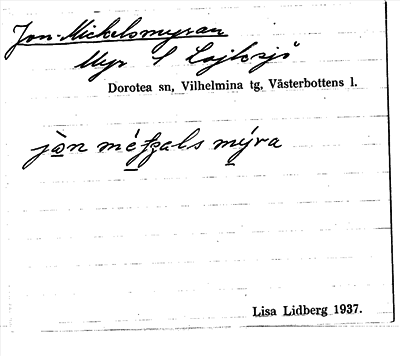 Jon-Mickelsmyran
Myr S Lajksjö
Dorotea sn, Vilhelmina tg, Västerbottens l.
jòn méʃʃals mýra
Lisa Lidberg 1937.